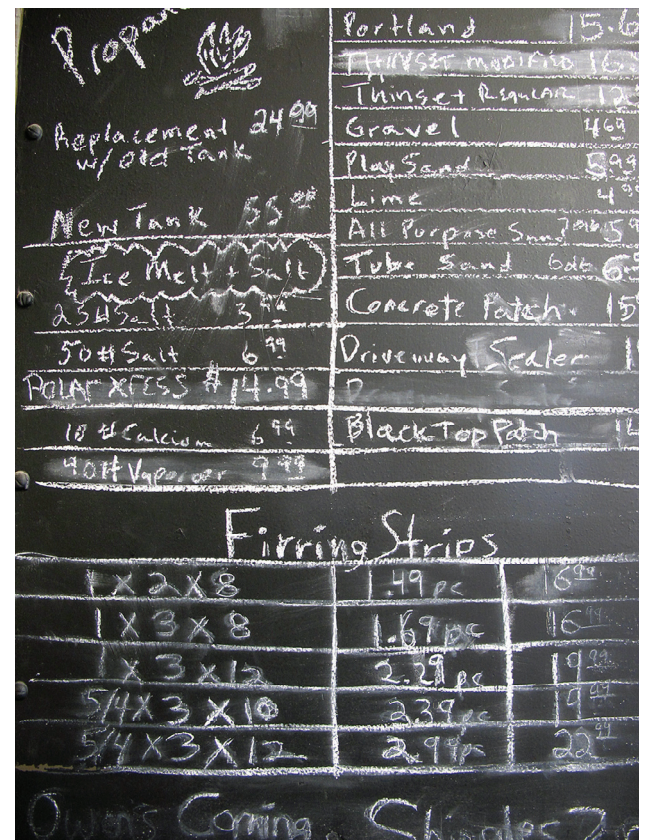 Propan
Replacement 24 99
w/old Tank
New Tank 55 00
Ice Melt + Salt
25# Salt 3 99
50# Salt 6 99
POLAR XPESS $14.99
10# Calcium 6 99
40# Vaporizer 9 99
Portland 15.6
THINSET MODIFIED 16
Thinset Regular 12
Gravel 4 69
Play Sand 5 99
Lime 4 99
All Purpose Sand 5 9
Tube Sand 60lb 6
Concrete Patch 15
Driveway Sealer 1
Black Top Patch 14
Firring Strips
1 X 2 X 8 1.49 pc 16 99
1 X 3 X 8 1.69 pc 16 99
1 X 3 X 12 2.29 pc 19 99
5/4 X 3 X 10 2.39 pc 19 99
5/4 X 3 X 12 2.99 pc 22 99
Owens Corning Shingles